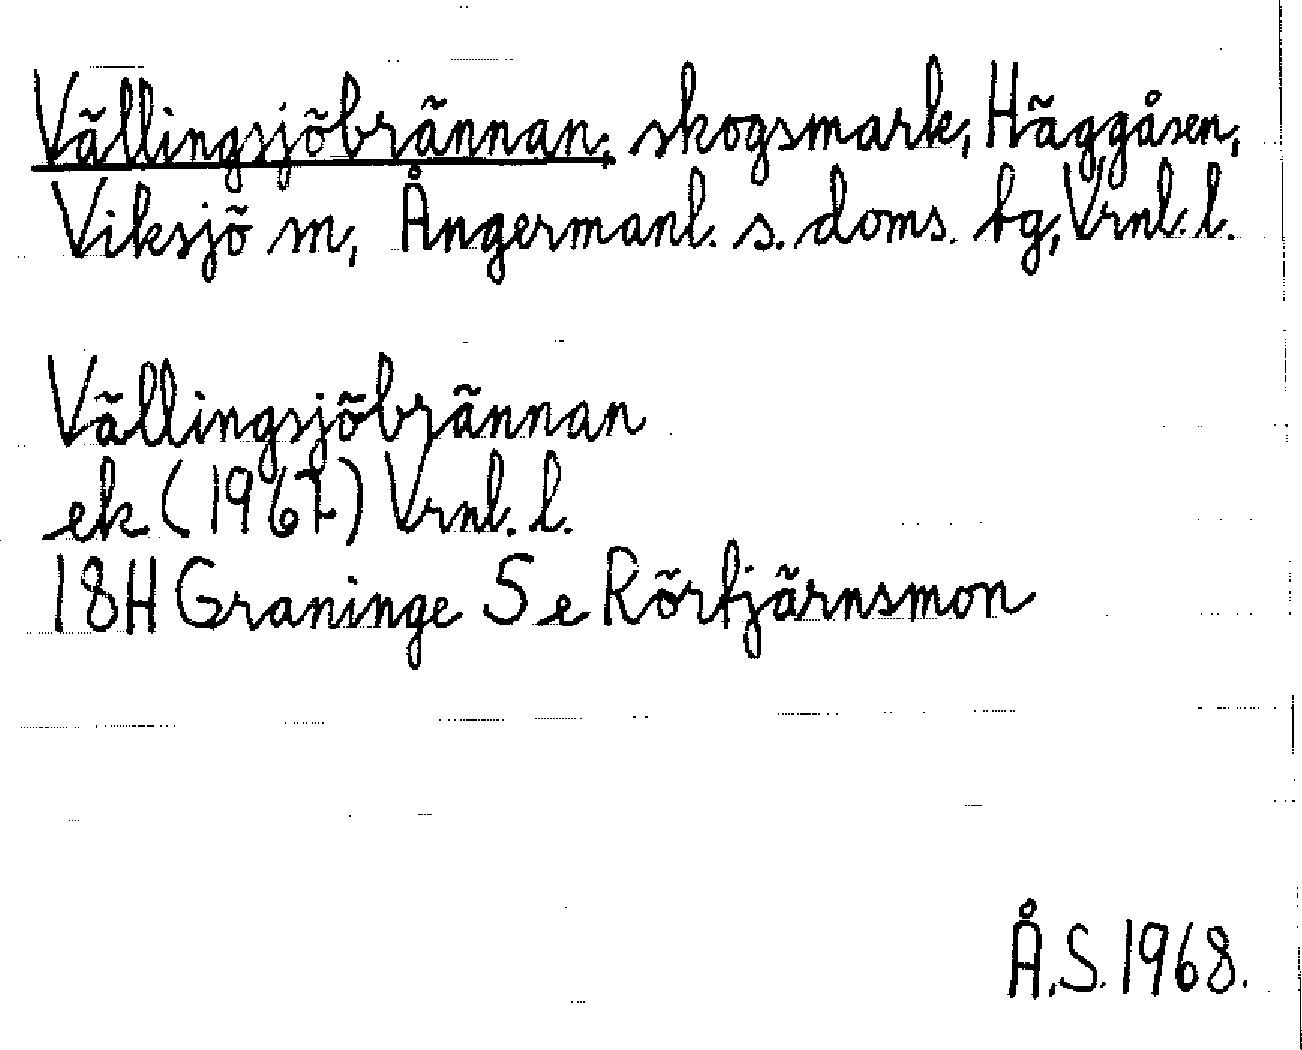 Vällingsjöbrännan, skogsmark, Häggåsen,
Viksjö sn, Ångermanl. s. doms. tg, Vrnl. l.
Vällingsjöbrännan
ek (1967) Vrnl. l.
18H Graninge S e Rörtjärnsmon
Å.S. 1968.